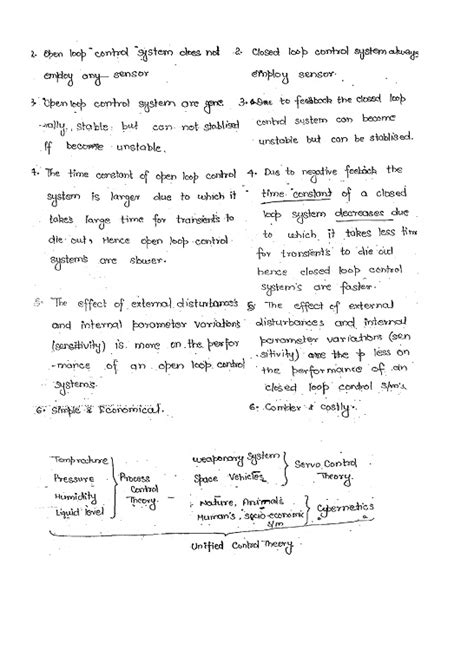 2. Open loop control system does not
employ any sensor
3. Open loop control system are gene
-rally, stable but can not stablised
if become unstable.
4. The time constant of open loop control
system is larger due to which it
takes large time for transients to
die out, Hence open loop control
system's are slower.
5. The effect of external disturbances
and internal parameter variations
(sensitivity) is more on the perfor
-mance of an open loop control
systems.
6. Simple & Economical.
2. Closed loop control system always
employ sensor.
3. Due to feedback the closed loop
control system can become
unstable but can be stablised.
4. Due to negative feeback the
time constant of a closed
loop system decreases due
to which it takes less time
for transients to die out
hence closed loop control
system's are faster.
5. The effect of external
disturbances and internal
parameter variations (sen
sitivity) are the less on
the performance of an
closed loop control s/m's.
6. Complex & costly.
Temprature
Pressure
Humidity
Liquid level
Process
Control
Theory
weaponary System
Space Vehicles
Servo Control
Theory.
Nature, Animals
Human's, socio-economic
s/m
Cybernetics
Unified Control Theory